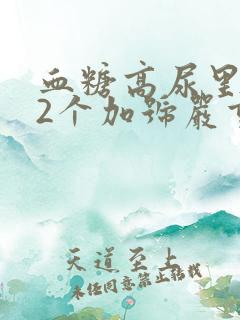 血糖高尿里
2个加号严
天道至上
未经同意禁止转载